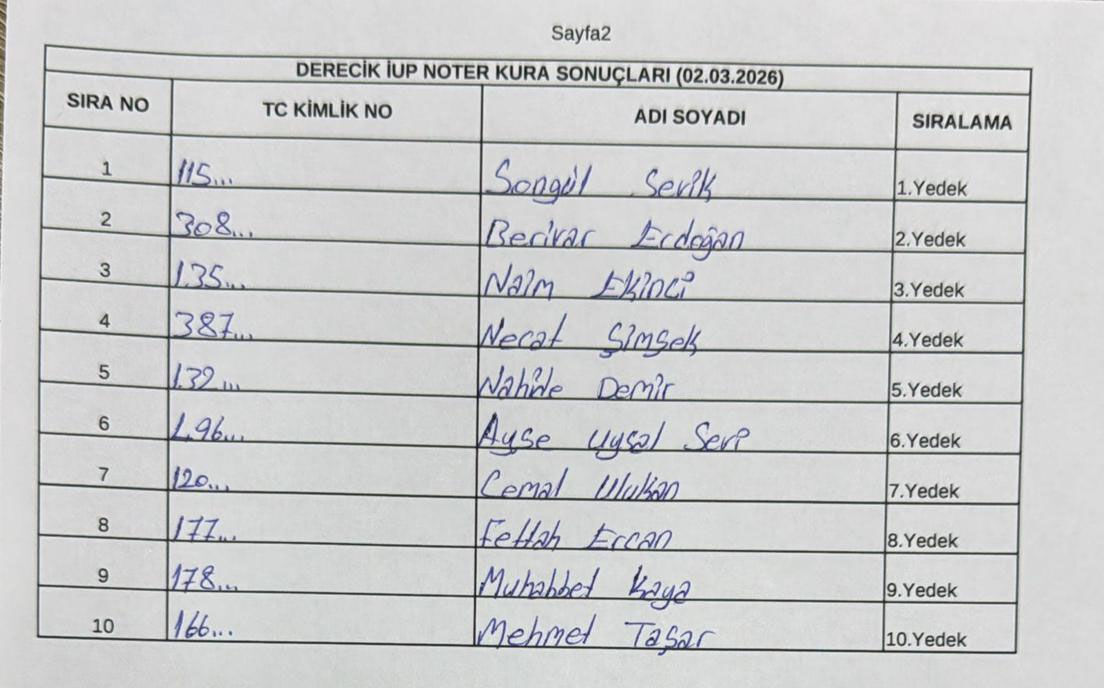 Sayfa2
DERECİK İUP NOTER KURA SONUÇLARI (02.03.2026)
SIRA NO TC KİMLİK NO ADI SOYADI SIRALAMA
1 115... Songül Serik 1.Yedek
2 308... Berivar Erdoğan 2.Yedek
3 135... Naim Ekinci 3.Yedek
4 387... Necat Şimşek 4.Yedek
5 132... Nahide Demir 5.Yedek
6 196... Ayşe Uysal Seri 6.Yedek
7 120... Cemal Ulukan 7.Yedek
8 177... Fettah Ercan 8.Yedek
9 178... Muhabbet Kaya 9.Yedek
10 166... Mehmet Taşar 10.Yedek